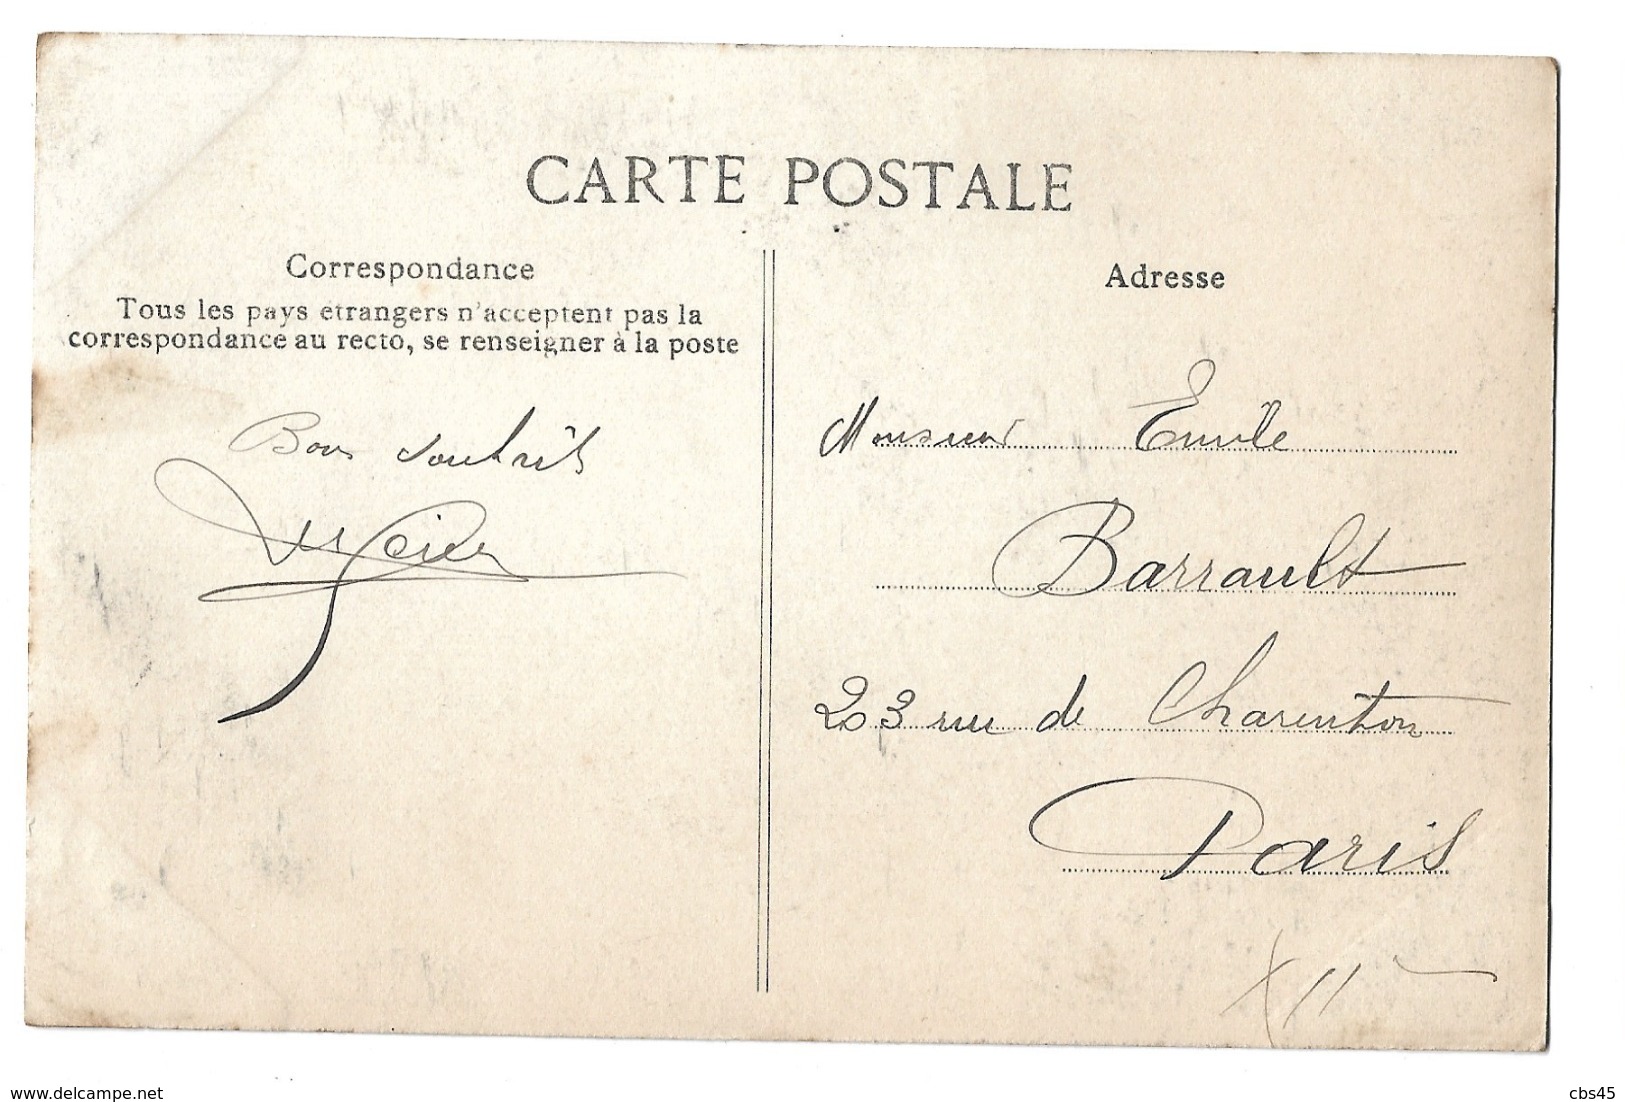 CARTE POSTALE
Correspondance
Tous les pays etrangers n'acceptent pas la
correspondance au recto, se renseigner à la poste
Bons souhaits
Adresse
Monsieur Emile
Barrault
23 rue de Charenton
Paris
XII
www.delcampe.net
cbs45